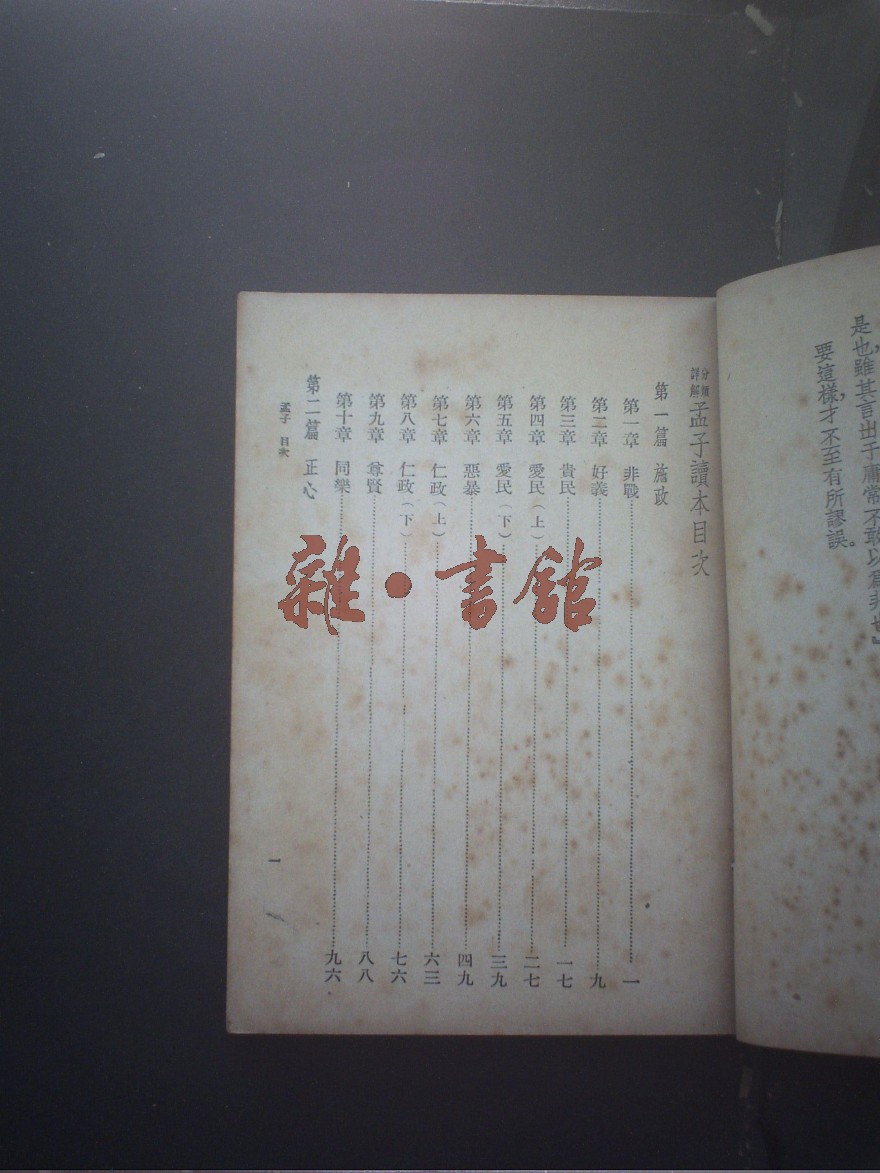 是也，雖其言出于庸常不敢以爲非也』
要這樣，才不至有所謬誤。
分類詳解孟子讀本目次
第一篇 施政
第一章 非戰……一
第二章 好義……九
第三章 貴民……一七
第四章 愛民（上）……二七
第五章 愛民（下）……三九
第六章 惡暴……四九
第七章 仁政（上）……六三
第八章 仁政（下）……七六
第九章 尊賢……八八
第十章 同樂……九六
第二篇 正心
孟子 目次
一
雜·書館